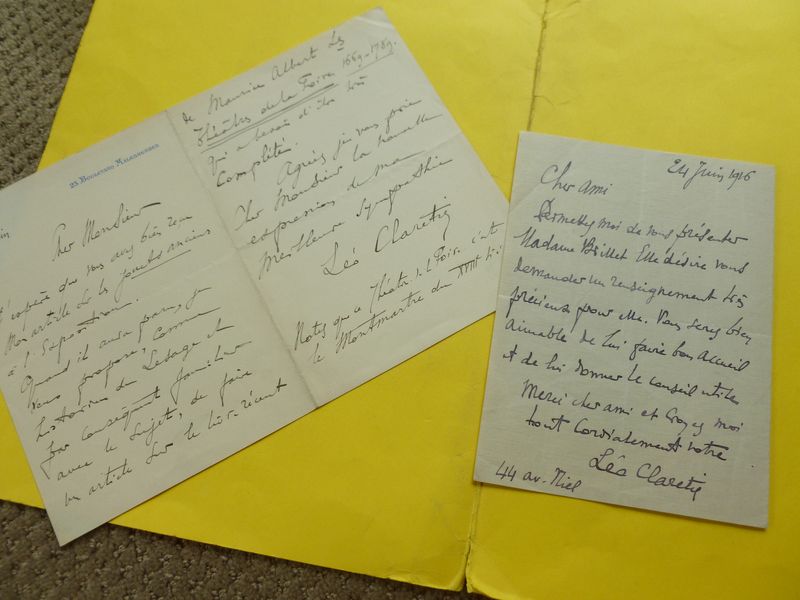 23 Boulevard Malesherbes
Cher Monsieur
J'espère que vous avez bien reçu
Mon article sur les jouets anciens
à l'Exposition.
Quand il aura paru, je
vous propose, comme
historien de Lesage et
par conséquent familier
avec le sujet, de faire
un article sur le livre récent
de Maurice Albert Les
Théâtres de la Foire 1660-1789.
qui a besoin d'être très
complété.
Agréez, je vous prie
Cher Monsieur la nouvelle
expression de ma
Meilleure Sympathie
Léo Claretie
Notez que Théâtr. d. l. Foire c'est
le Montmartre du XVIII
24 Juin 1916
Cher ami
Permettez moi de vous présenter
Madame Brillet Elle désire vous
demander un renseignement très
précieux pour elle. Vous serez bien
aimable de lui faire bon accueil
et de lui donner le conseil utile
Merci cher ami et Croyez moi
tout cordialement votre
Léo Claretie
44 av. Niel